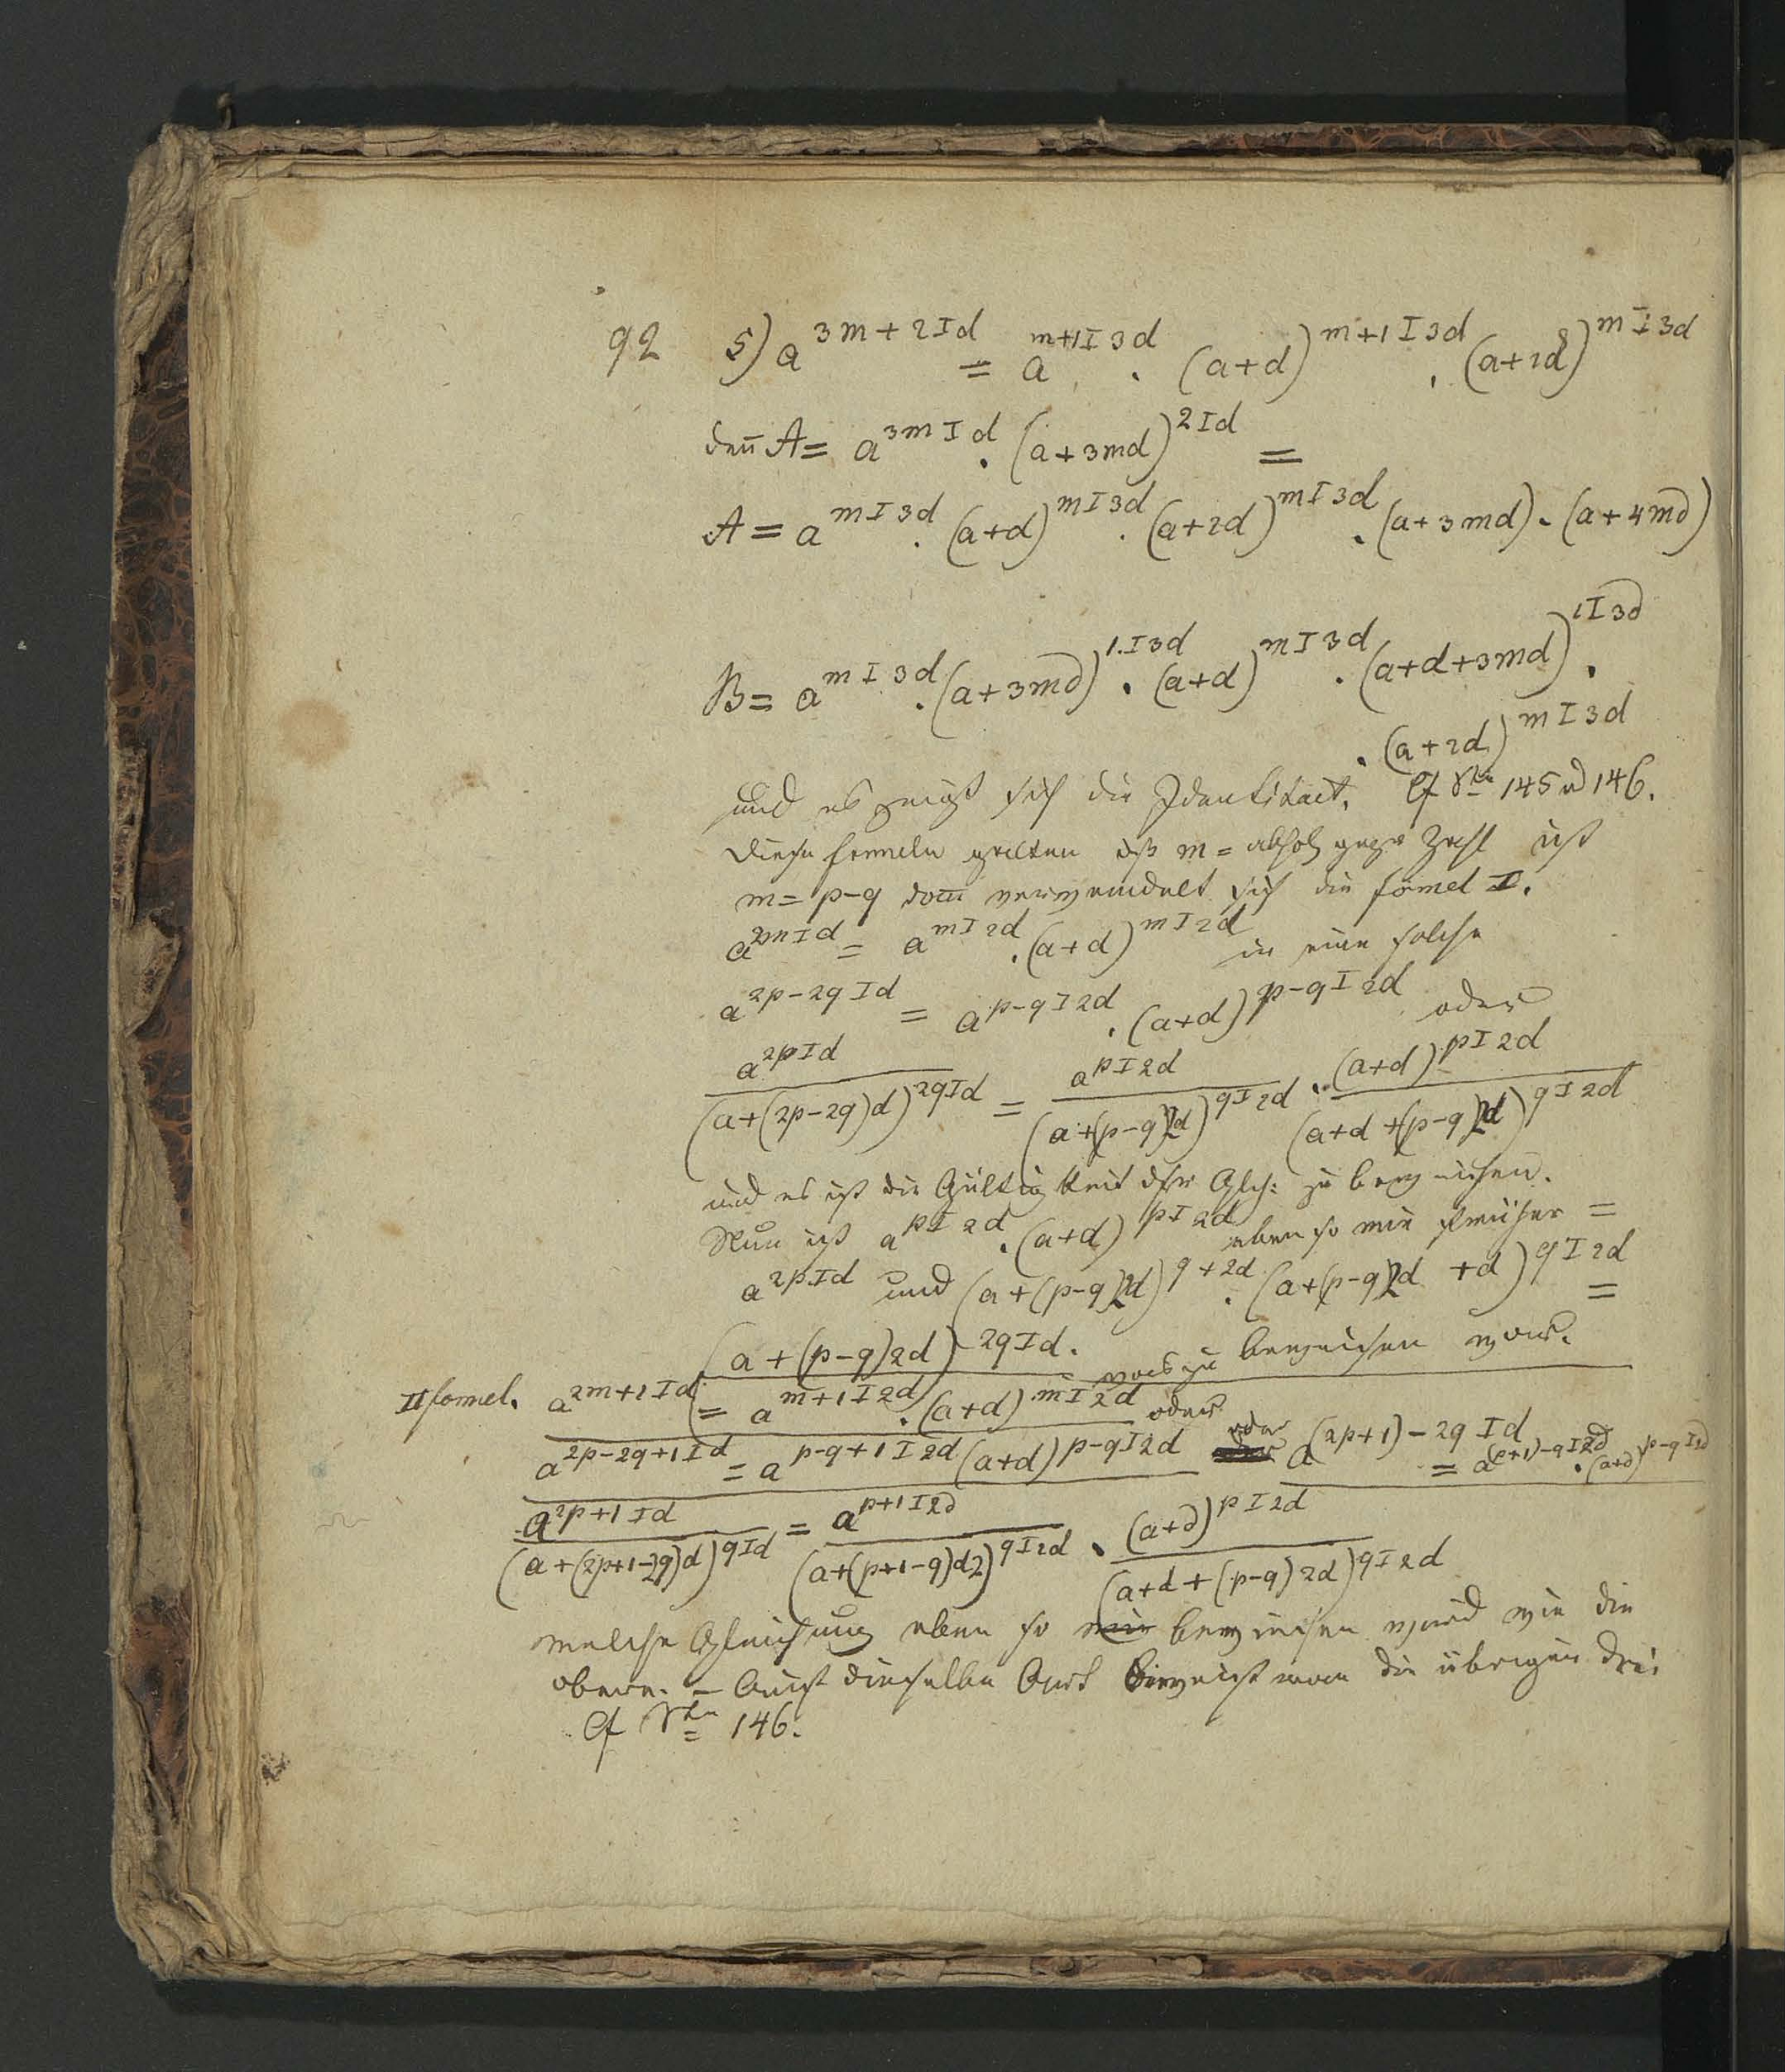 92 5) a^{3m+2 I d} = a^{m+1 I 3d} . (a+d)^{m+1 I 3d} . (a+2d)^{m I 3d}
den̄ A = a^{3m I d} . (a+3md)^{2 I d} =
A = a^{m I 3d} . (a+d)^{m I 3d} . (a+2d)^{m I 3d} . (a+3md) . (a+4md)
B = a^{m I 3d} . (a+3md)^{1. I 3d} . (a+d)^{m I 3d} . (a+d+3md)^{1 I 3d} .
. (a+2d)^{m I 3d}
und es zeigt sich die Identitaet. Cf 145 u 146.
Diese formeln gelten m = Zahl ist
m = p-q dan̄ verwandelt sich die formel I.
a^{2m I d} = a^{m I 2d} . (a+d)^{m I 2d} in eine solche
a^{2p-2q I d} = a^{p-q I 2d} . (a+d)^{p-q I 2d} oder
a^{2p I d} / (a+(2p-2q)d)^{2q I d} = a^{p I 2d} / (a+(p-q)2d)^{q I 2d} . (a+d)^{p I 2d} / (a+d+(p-q)2d)^{q I 2d}
und es ist die Gültigkeit dsr Glch: zu beweisen.
Nun ist a^{p I 2d} . (a+d)^{p I 2d} eben so wie früher =
a^{2p I d} und (a+(p-q)2d)^{q I 2d} . (a+(p-q)2d+d)^{q I 2d} =
(a+(p-q)2d)^{2q I d}. was zu beweisen war.
II formel. a^{2m+1 I d} = a^{m+1 I 2d} . (a+d)^{m I 2d} oder
a^{2p-2q+1 I d} = a^{p-q+1 I 2d} (a+d)^{p-q I 2d} oder a^{(2p+1)-2q I d} = a^{(p+1)-q I 2d} . (a+d)^{p-q I 2d}
a^{2p+1 I d} / (a+(2p+1-2q)d)^{q I d} = a^{p+1 I 2d} / (a+(p+1-q)d2)^{q I 2d} . (a+d)^{p I 2d} / (a+d+(p-q)2d)^{q I 2d}
welche Gleichung eben so bewiesen wird wie die
obere. – Auf dieselbe Art beweist man die übrigen drei
Cf 146.